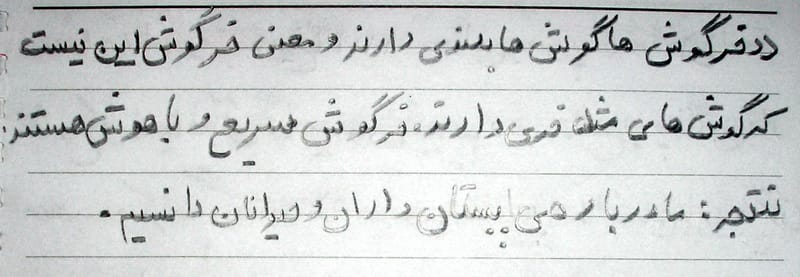 ددفرگوش ها گوش ها بلندی دارند و معنی خرگوش این نیست
که گوش های مثله خری دارند. خرگوش سریع و با هوش هستند.
نتجه: ما درباره ی پستان داران و حیوانان دانسیم.